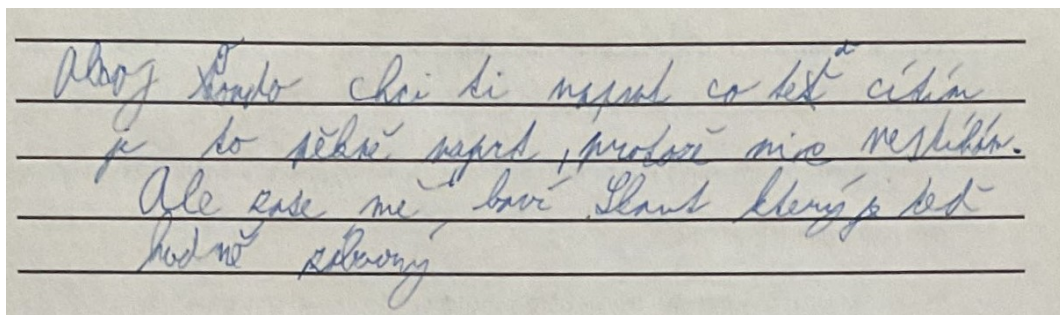 Ahoj Tondo chci ti napsat co teď cítím
je to pěkně naprd, protože nic nestíhám.
Ale zase mě baví Skaut který je teď
hodně zábavný